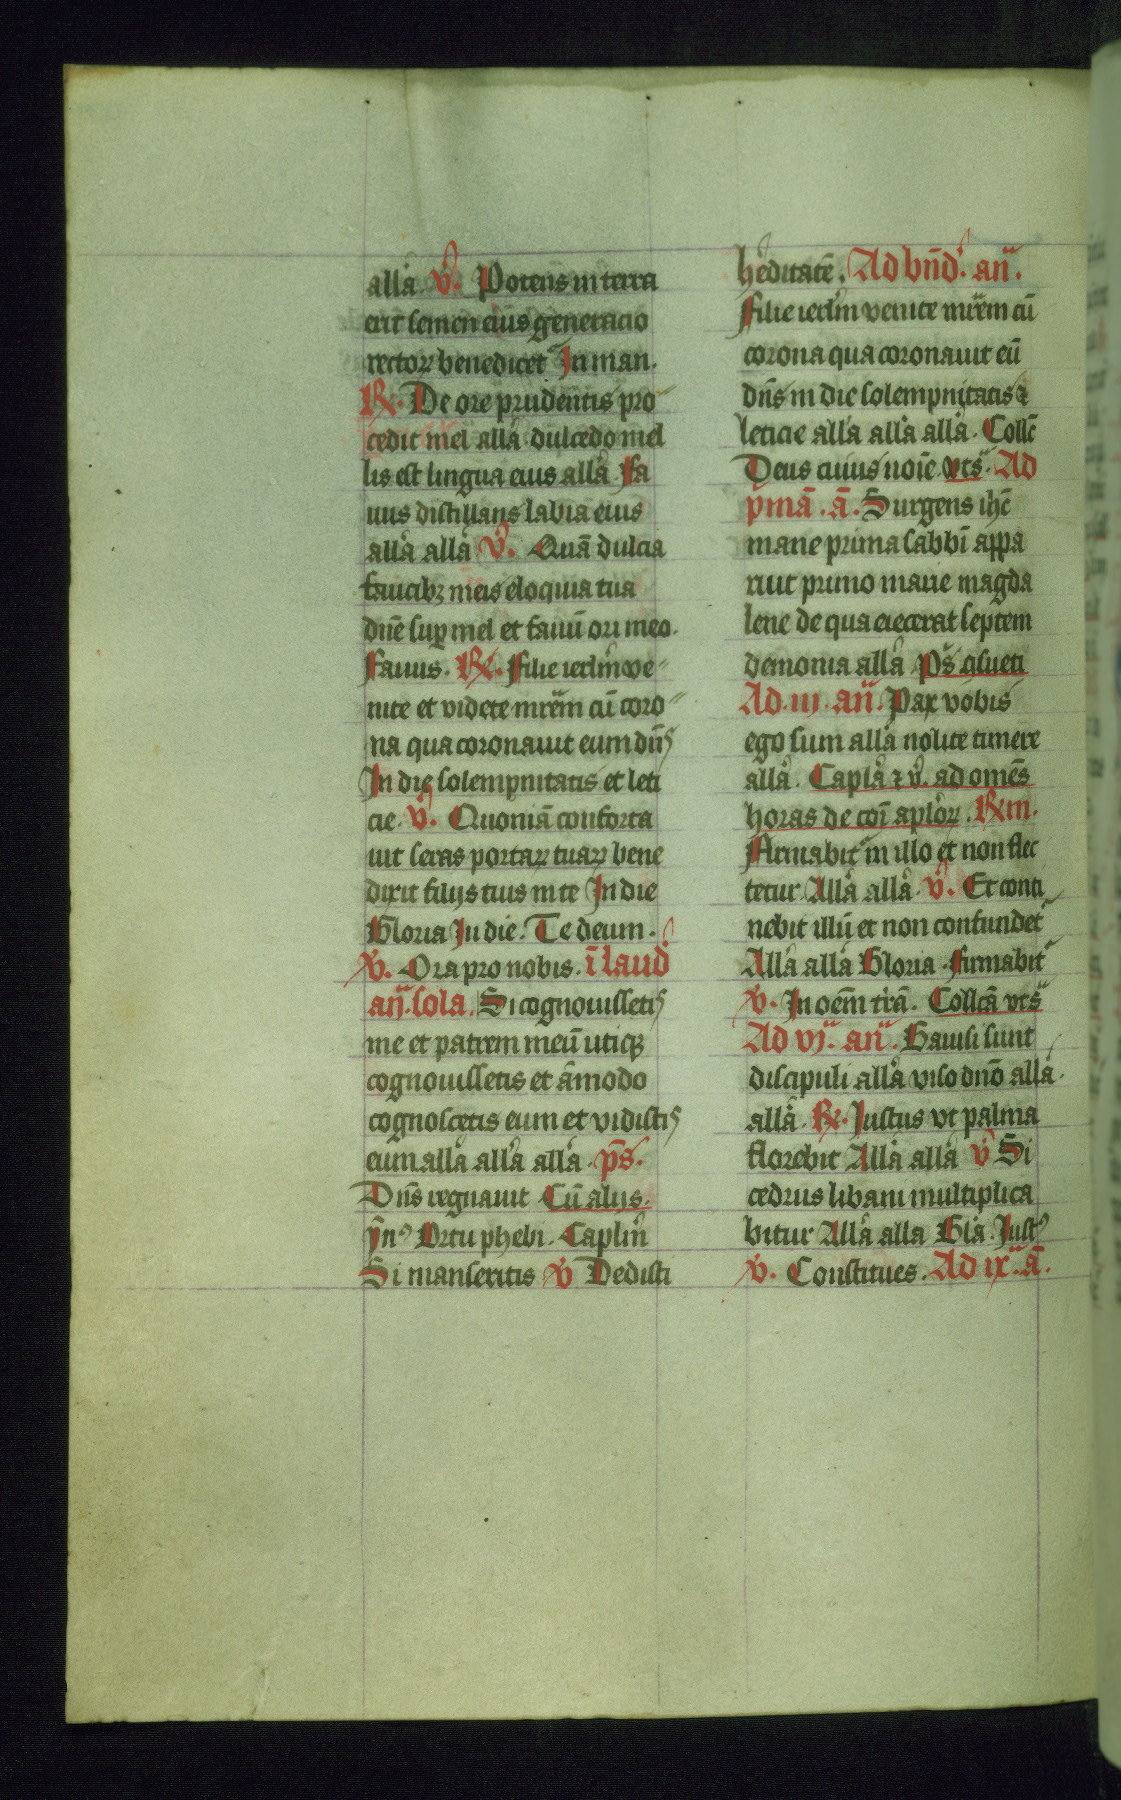 alla. v. Potens in terra
erit semen eius generacio
rectoꝝ benedicet In man.
R. De ore prudentis pro
cedit mel alla dulcedo mel
lis est lingua eius alla. Fa
uus distillans labia eius
alla alla v. Quā dulcia
faucibꝫ meis eloquia tua
dn̄e suꝑ mel et fauū ori meo.
Fauus. R. Filie ierl̄m ve
nite et videte mr̄em cū coro
na qua coronauit eum dn̄s
In die solempnitatis et leti
cie. v. Quoniā conforta
uit seras portaꝝ tuaꝝ bene
dixit filijs tuis in te In die
Gloria In die. Te deum.
v. Ora pro nobis. ī laud
an̄. sola. Si cognouissetis
me et patrem meū utiqꝫ
cognouissetis et āmodo
cognoscetis eum et vidistis
eum alla alla alla. ps̄.
Dn̄s regnauit Cū alijs.
ȳnꝰ Ortu phebi. Caplm̄
Si manseritis v Dedisti
hēditatē. Ad bn̄d. an̄.
Filie ierl̄m venite mr̄em cū
corona qua coronauit eū
dn̄s in die solempnitatis ⁊
leticie alla alla alla. Collc̄
Deus cuius noīe vts̄. Ad
p̄mā. ā. Surgens ih̄c
mane prima sabbī appa
ruit primo marie magda
lene de qua eiecerat septem
demonia alla. Ps̄ q̄sueti
Ad. iij. an̄. Pax vobis
ego sum alla nolite timere
alla. Capla ⁊ v. ad omēs
horas de coī aploꝝ. Rm.
Firmabit in illo et non flec
tetur Alla alla. v. Et conti
nebit illū et non confundet
Alla alla Gloria. Firmabit
v. In oēm tr̄ā. Collcā vts̄
Ad vj. an̄. Gauisi sunt
discipuli alla viso dn̄o alla.
alla. R. Justus vt palma
florebit Alla alla v Si
cedrus libani multiplica
bitur Alla alla Gla. Justꝰ
v. Constitues. Ad ix. ā.